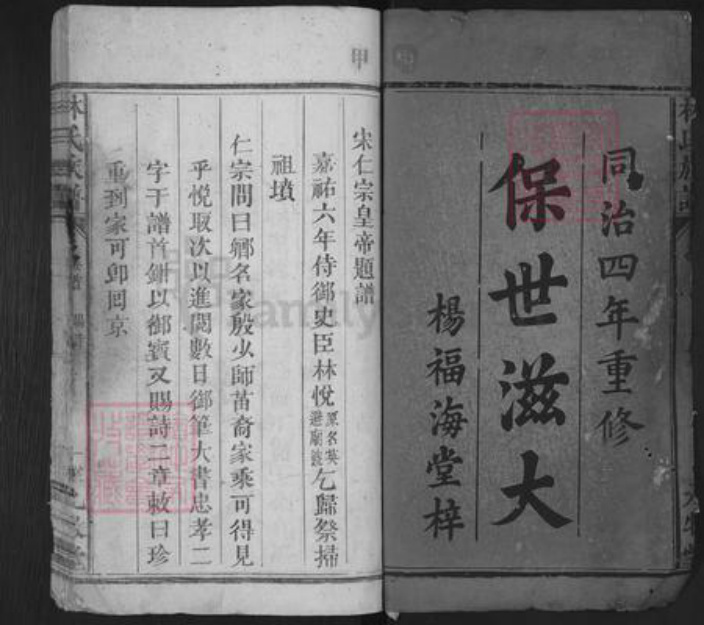 同治四年重修
保世滋大
楊福海堂梓
甲
宋仁宗皇帝題譜
嘉祐六年侍御史臣林悅原名英避廟諱乞歸祭掃
祖墳
仁宗問曰鄉名家殷少師苗裔家乘可得見
乎悅取次以進閱數日御筆大書忠孝二
字于譜首鈐以御寶又賜詩二章敕曰珍
重到家可卽囘京
林氏族譜